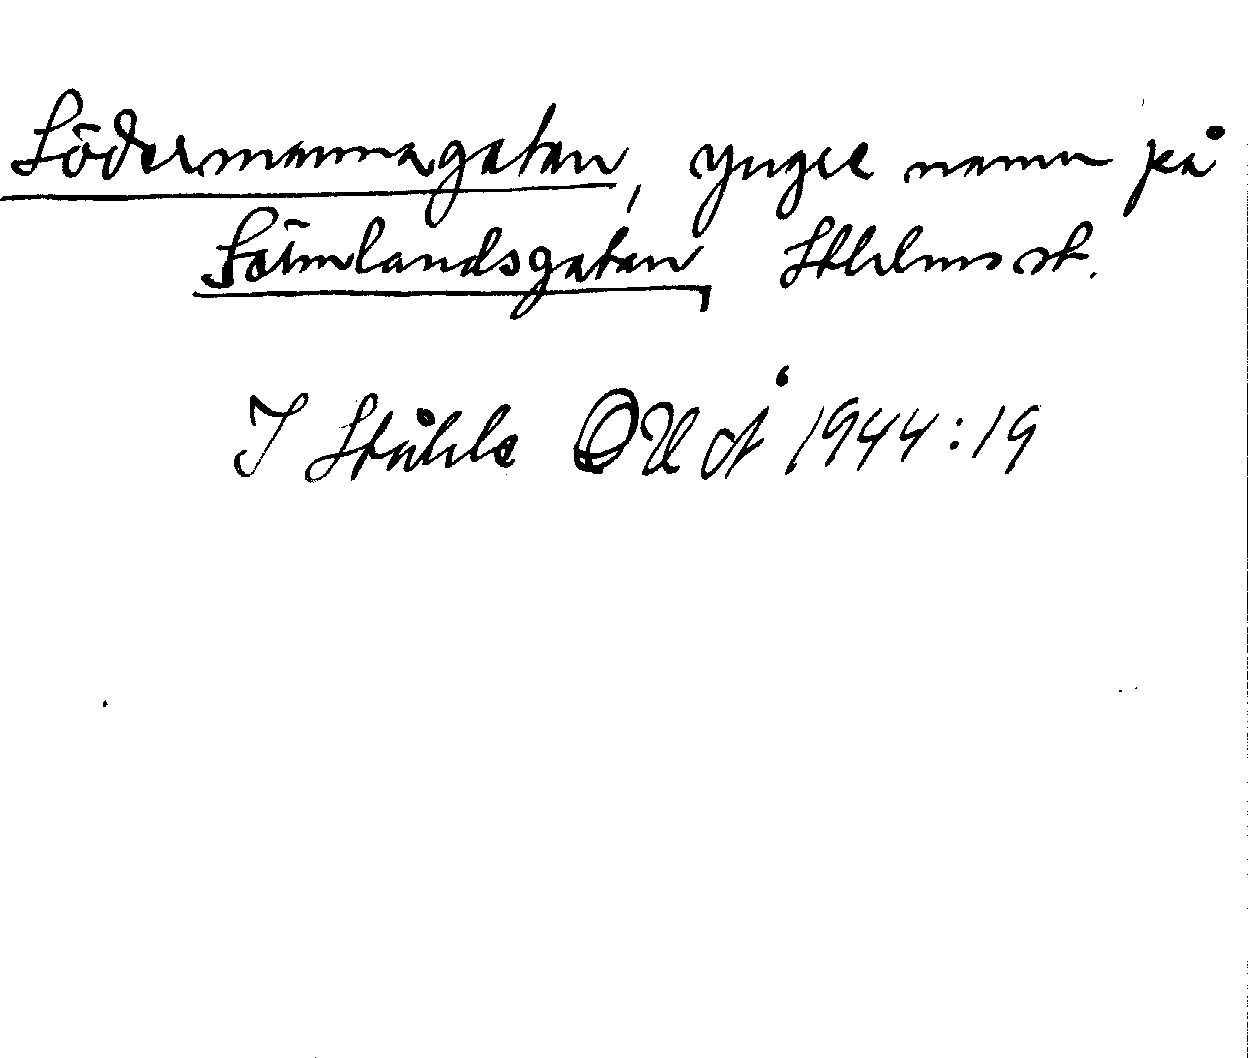 Södermannagatan, yngre namn på
Sörmlandsgatan, Sthlms st.
I Ståhle OUÅ 1944:19